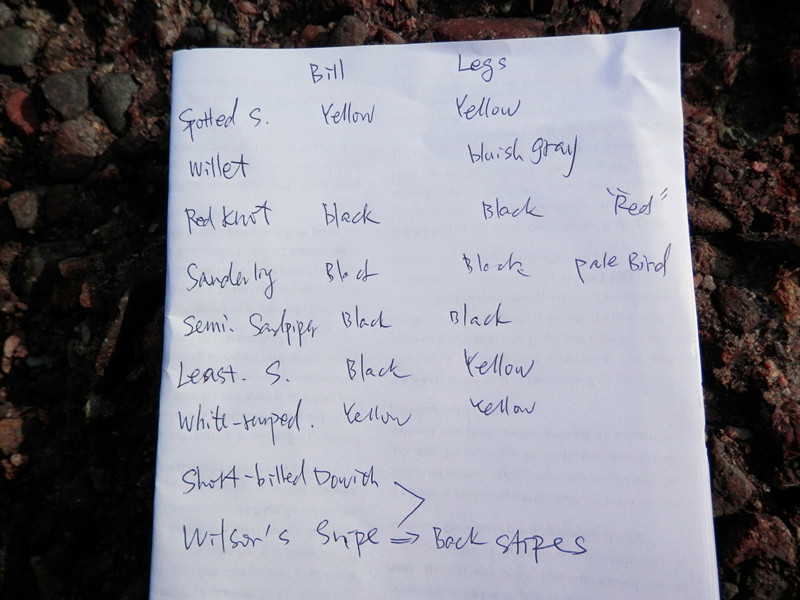 Bill Legs
Spotted S. Yellow Yellow
Willet bluish gray
Red Knot Black Black "Red"
Sanderling Black Black pale Bird
Semi. Sandpiper Black Black
Least. S. Black Yellow
White-rumped. Yellow Yellow
Short-billed Dowith
Wilson's Snipe => Back stripes